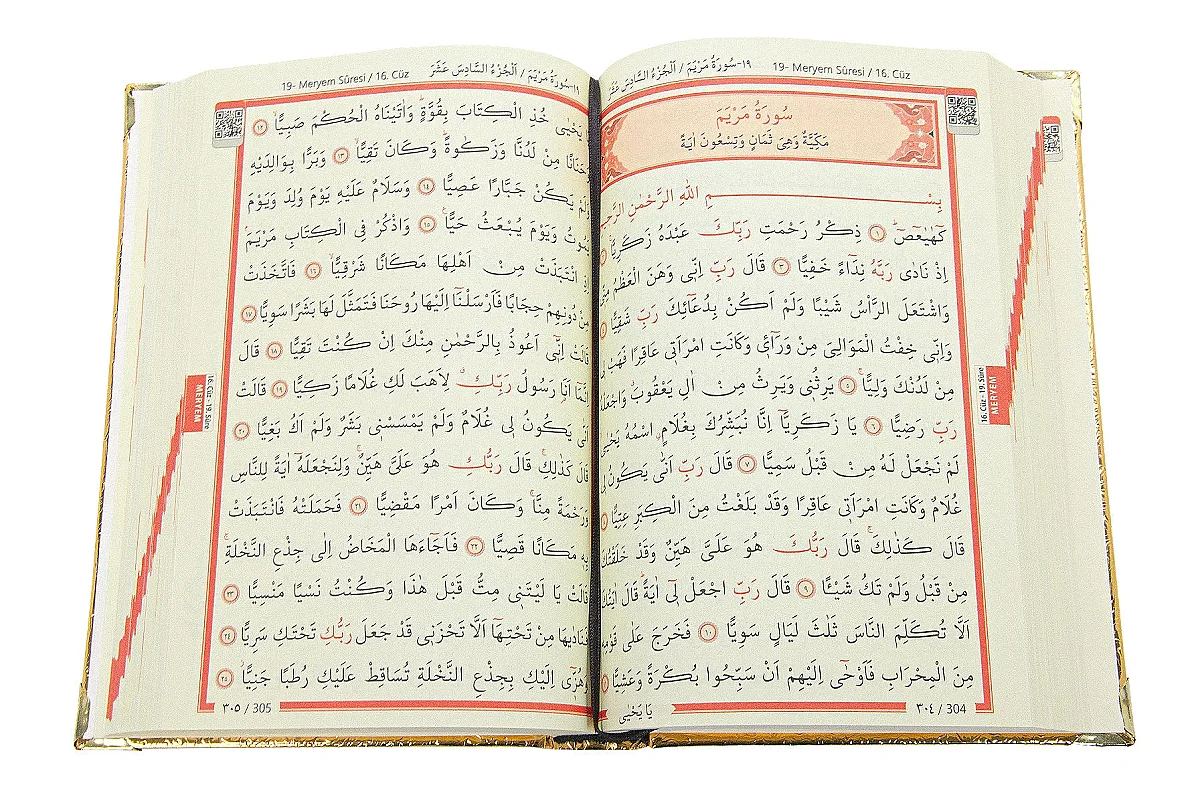 ١٩-سُورَةُ مَرْيَمَ / اَلْجُزْءُ السَّادِسَ عَشَرَ
19- Meryem Sûresi / 16. Cüz
سُورَةُ مَرْيَمَ
مَكِّيَّةٌ وَهِيَ ثَمَانٍ وَتِسْعُونَ اٰيَةً
بِسْمِ اللّٰهِ الرَّحْمٰنِ الرَّحِيمِ
كٓهٰيٰعٓصٓ ﴿١﴾ ذِكْرُ رَحْمَتِ رَبِّكَ عَبْدَهُ زَكَرِيَّاۚ
اِذْ نَادٰى رَبَّهُ نِدَٓاءً خَفِيًّا ﴿٣﴾ قَالَ رَبِّ اِنّ۪ي وَهَنَ الْعَظْمُ مِنّ۪ي
وَاشْتَعَلَ الرَّأْسُ شَيْبًا وَلَمْ اَكُنْ بِدُعَٓائِكَ رَبِّ شَقِيًّا
وَاِنّ۪ي خِفْتُ الْمَوَالِيَ مِنْ وَرَٓاء۪ي وَكَانَتِ امْرَاَت۪ي عَاقِرًا فَهَبْ ل۪ي
مِنْ لَدُنْكَ وَلِيًّاۙ ﴿٥﴾ يَرِثُن۪ي وَيَرِثُ مِنْ اٰلِ يَعْقُوبَۗ وَاجْعَلْهُ
رَبِّ رَضِيًّا ﴿٦﴾ يَا زَكَرِيَّٓا اِنَّا نُبَشِّرُكَ بِغُلَامٍۨ اسْمُهُ يَحْيٰىۙ
لَمْ نَجْعَلْ لَهُ مِنْ قَبْلُ سَمِيًّا ﴿٧﴾ قَالَ رَبِّ اَنّٰى يَكُونُ ل۪ي
غُلَامٌ وَكَانَتِ امْرَاَت۪ي عَاقِرًا وَقَدْ بَلَغْتُ مِنَ الْكِبَرِ عِتِيًّا ﴿٨﴾
قَالَ كَذٰلِكَۚ قَالَ رَبُّكَ هُوَ عَلَيَّ هَيِّنٌ وَقَدْ خَلَقْتُكَ
مِنْ قَبْلُ وَلَمْ تَكُ شَيْـًٔا ﴿٩﴾ قَالَ رَبِّ اجْعَلْ ل۪ٓي اٰيَةًۜ قَالَ اٰيَتُكَ
اَلَّا تُكَلِّمَ النَّاسَ ثَلٰثَ لَيَالٍ سَوِيًّا ﴿١٠﴾ فَخَرَجَ عَلٰى قَوْمِه۪
مِنَ الْمِحْرَابِ فَاَوْحٰٓى اِلَيْهِمْ اَنْ سَبِّحُوا بُكْرَةً وَعَشِيًّا
يَا يَحْيٰى
٣٠٤ / 304
16. Cüz - 19. Sûre
MERYEM
١٩-سُورَةُ مَرْيَمَ / اَلْجُزْءُ السَّادِسَ عَشَرَ
19- Meryem Sûresi / 16. Cüz
يَا يَحْيٰى خُذِ الْكِتَابَ بِقُوَّةٍۜ وَاٰتَيْنَاهُ الْحُكْمَ صَبِيًّاۙ ﴿١٢﴾
وَحَنَانًا مِنْ لَدُنَّا وَزَكٰوةًۜ وَكَانَ تَقِيًّاۙ ﴿١٣﴾ وَبَرًّا بِوَالِدَيْهِ
وَلَمْ يَكُنْ جَبَّارًا عَصِيًّا ﴿١٤﴾ وَسَلَامٌ عَلَيْهِ يَوْمَ وُلِدَ وَيَوْمَ
يَمُوتُ وَيَوْمَ يُبْعَثُ حَيًّا۟ ﴿١٥﴾ وَاذْكُرْ فِي الْكِتَابِ مَرْيَمَۢ
اِذِ انْتَبَذَتْ مِنْ اَهْلِهَا مَكَانًا شَرْقِيًّاۙ ﴿١٦﴾ فَاتَّخَذَتْ
مِنْ دُونِهِمْ حِجَابًا فَاَرْسَلْنَٓا اِلَيْهَا رُوحَنَا فَتَمَثَّلَ لَهَا بَشَرًا سَوِيًّا ﴿١٧﴾
قَالَتْ اِنّ۪ٓي اَعُوذُ بِالرَّحْمٰنِ مِنْكَ اِنْ كُنْتَ تَقِيًّا ﴿١٨﴾ قَالَ
اِنَّمَٓا اَنَا۬ رَسُولُ رَبِّكِۗ لِاَهَبَ لَكِ غُلَامًا زَكِيًّا ﴿١٩﴾ قَالَتْ
اَنّٰى يَكُونُ ل۪ي غُلَامٌ وَلَمْ يَمْسَسْن۪ي بَشَرٌ وَلَمْ اَكُ بَغِيًّا ﴿٢٠﴾
قَالَ كَذٰلِكِۚ قَالَ رَبُّكِ هُوَ عَلَيَّ هَيِّنٌۚ وَلِنَجْعَلَهُٓ اٰيَةً لِلنَّاسِ
وَرَحْمَةً مِنَّاۚ وَكَانَ اَمْرًا مَقْضِيًّا ﴿٢١﴾ فَحَمَلَتْهُ فَانْتَبَذَتْ
بِه۪ مَكَانًا قَصِيًّا ﴿٢٢﴾ فَاَجَٓاءَهَا الْمَخَاضُ اِلٰى جِذْعِ النَّخْلَةِۚ
قَالَتْ يَا لَيْتَن۪ي مِتُّ قَبْلَ هٰذَا وَكُنْتُ نَسْيًا مَنْسِيًّا ﴿٢٣﴾
فَنَادٰيهَا مِنْ تَحْتِهَٓا اَلَّا تَحْزَن۪ي قَدْ جَعَلَ رَبُّكِ تَحْتَكِ سَرِيًّا ﴿٢٤﴾
وَهُزّ۪ٓي اِلَيْكِ بِجِذْعِ النَّخْلَةِ تُسَاقِطْ عَلَيْكِ رُطَبًا جَنِيًّاۘ ﴿٢٥﴾
٣٠٥ / 305
16. Cüz - 19. Sûre
MERYEM